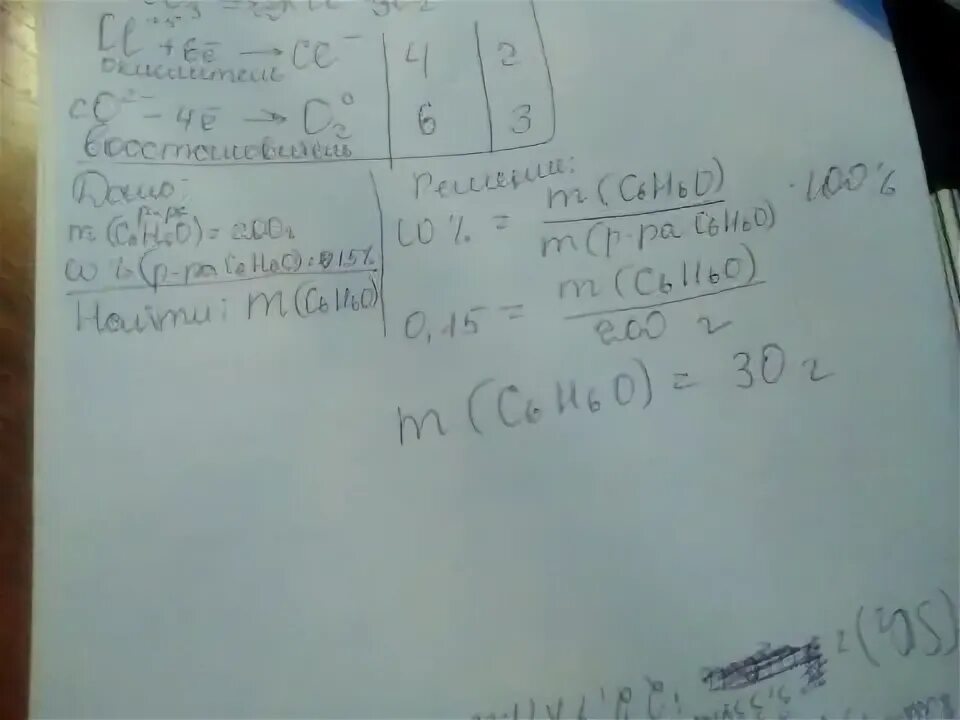 Cl⁺⁵ + 6ē → Cl⁻ | 4 | 2
окислитель
O²⁻ – 4ē → O₂⁰ | 6 | 3
восстановитель
Дано:
р-ра
m (C₆H₆O) = 200г
ω % (р-ра C₆H₆O) = 15%
Найти: m (C₆H₆O)
Решение:
ω % = m (C₆H₆O) / m (р-ра C₆H₆O) · 100%
0,15 = m (C₆H₆O) / 200 г
m (C₆H₆O) = 30 г